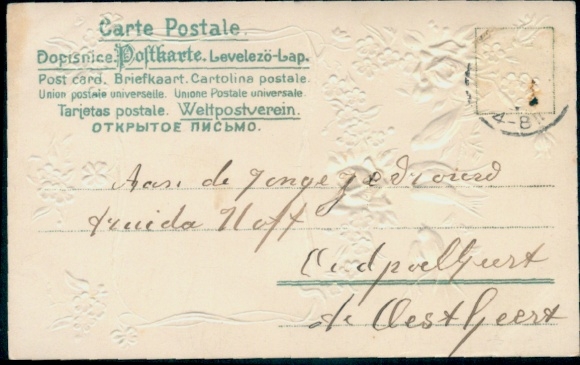 Carte Postale.
Dopisnice. Postkarte. Levelezö-Lap.
Post card. Briefkaart. Cartolina postale.
Union postale universelle. Unione Postale universale.
Tarjetas postale. Weltpostverein.
ОТКРЫТОЕ ПИСЬМО.
4-8
Aan de Jonge
Hoff
te OestGeest